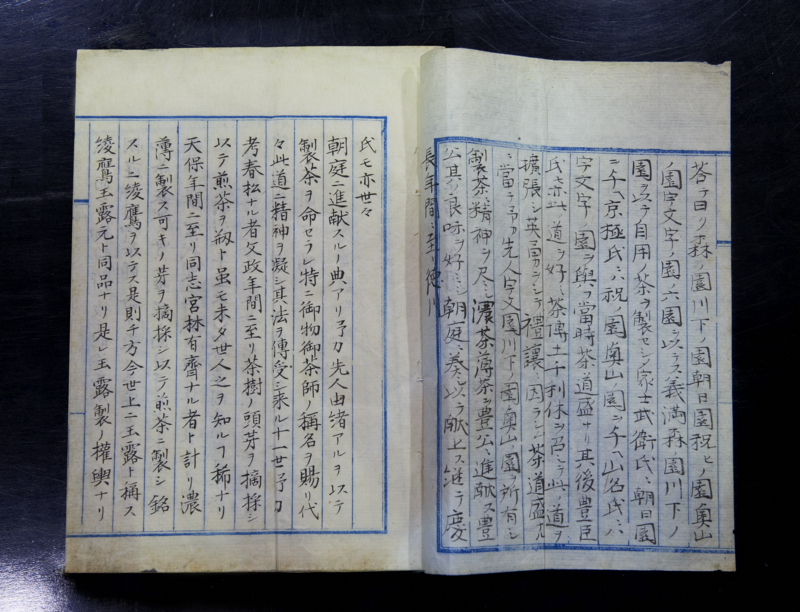 答テ曰ク森ノ園川下ノ園朝日園祝ヒノ園奥山
ノ園宇文字ノ園ノ六園ヲ以テス義満森園川下ノ
園ヲ以テ自用ノ茶ヲ製セシ家士武衛氏ニ朝日園
ニ千ヘ京極氏ニハ祝ノ園奥山ノ園ニ千ヘ山名氏ニハ
宇文字ノ園ヲ與フ當時茶道盛ナリ其後豊臣
氏亦此道ヲ好ミ茶傳士千利休ヲ召シテ此ノ道ヲ
擴張シ英勇ヲシテ禮讓ニ因ラシ茶道盛ル
ニ當テ予カ先人宇文園川下ノ園奥山ノ園ヲ所有シ
製茶ニ精神ヲ尽シ濃茶薄茶ヲ豊公ニ進献ス豊
公其ノ良味ヲ好ミ朝庭ニ奏シ以テ献上ス継テ慶
長ノ年間ニ至リ徳川
氏モ亦世々
朝庭ニ進献スルノ典アリ予カ先人由緒アルヲ以テ
製茶ヲ命セラレ特ニ御物御茶師ノ稱名ヲ賜リ代
々此道ニ精神ヲ凝シ其法ヲ傳受シ来ル十一世予カ
考春松ナル者文政年間ニ至リ茶樹ノ頭芽ヲ摘採シ
以テ煎茶ヲ剏ト虽モ未タ世人之ヲ知ルヿ稀ナリ
天保年間ニ至リ同志宮林有齊ナル者ト計リ濃
薄ニ製ス可キノ芽ヲ摘採シ以テ煎茶ニ製シ銘
スルニ綾鷹ヲ以テス是則チ方今世上ニ玉露ト稱ス
綾鷹玉露元ト同品ナリ是レ玉露製ノ權輿ナリ